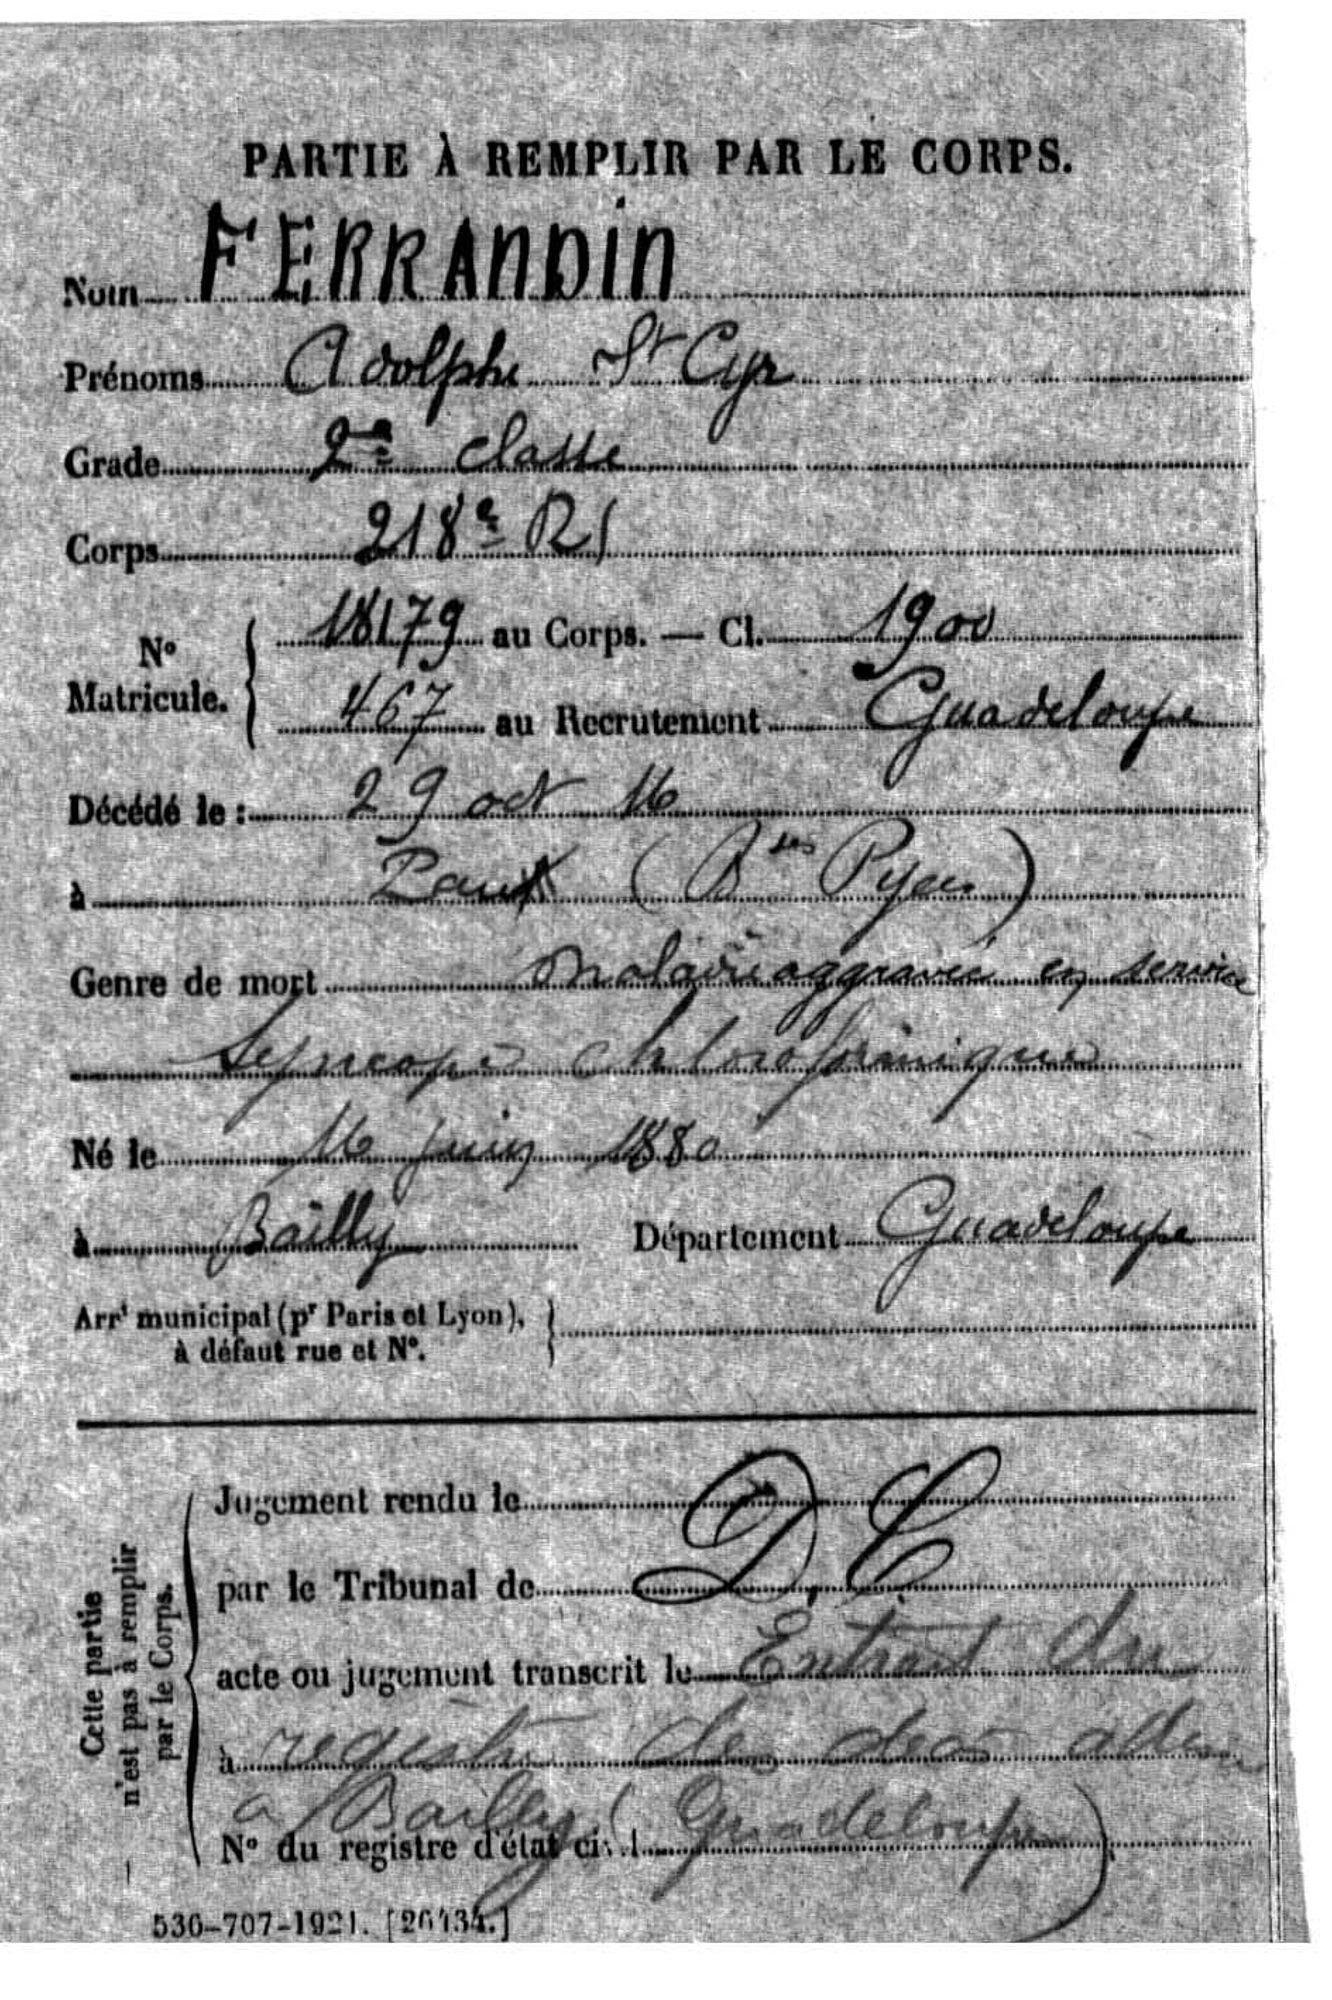 PARTIE À REMPLIR PAR LE CORPS.
Nom FERRANDIN
Prénoms Adolphe St Cyr
Grade 2me classe
Corps 218e RI
N° Matricule. 18179 au Corps. — Cl. 1900
467 au Recrutement Guadeloupe
Décédé le : 29 oct 16
à Pau (Bses Pyen)
Genre de mort maladie aggravée en service
Syncope chloroformique
Né le 16 Juin 1880
à Bailly Département Guadeloupe
Arrt municipal (pr Paris et Lyon),
à défaut rue et N°.
Cette partie
n'est pas à remplir
par le Corps.
Jugement rendu le D.C.
par le Tribunal de
acte ou jugement transcrit le Extrait du
à registre des décès
a Bailly (Guadeloupe)
N° du registre d'état civil
536-707-1921. [26434.]